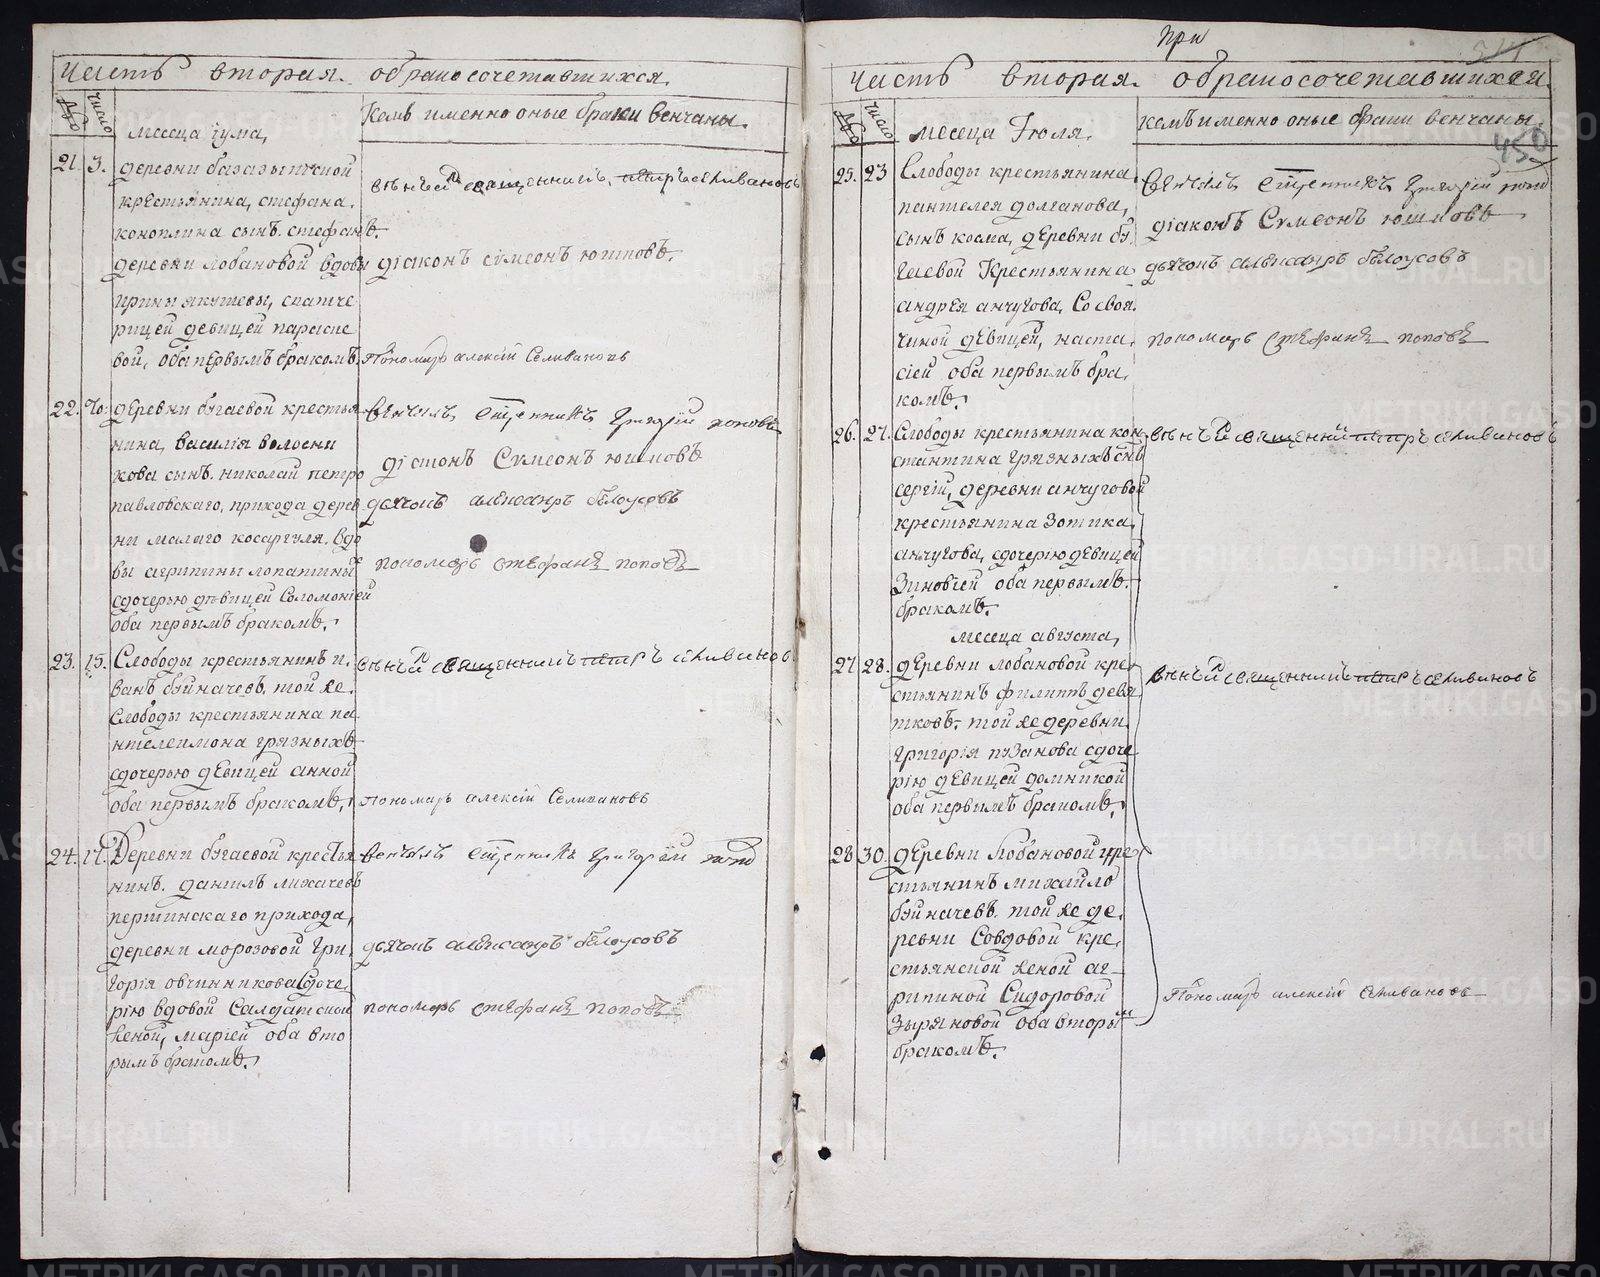 часть вторая. обракосочетавшихся.
число
месеца іума,
кемъ именно оные браки венчаны.
21 3. деревни
крестьянина, стефана,
коноплина сынъ. стефанъ.
деревни лобановой вдовы
ирины якушевы, спатче
рицей девицей параске
вой, оба первымъ бракомъ.
діаконъ сумеонъ юшковъ.
пономарь алексій Селивановъ
22. деревни бугаевой крестья
нина, василія волосни
кова сынъ. николай петро
павловскаго, прихода дерев
ни малаго косаргуля. вдо
вы агрипины лопатиный
сдочерью дѣвицей Соломоніей
оба первымъ бракомъ.
Григорій поповъ
діаконъ Сумеонъ юшковъ
александръ бѣлоусовъ
пономарь стефанъ поповъ
23. 15. Слободы крестьянинъ и.
ванъ буйначевъ. той же.
Слободы крестьянина па
нтелеимона грязныхъ
сдочерью девицей анной
оба первымъ бракомъ.
священникъ петръ селивановъ
пономарь алексій Селивановъ
24. 17. Деревни бугаевой крестья
нинъ. данилъ лихачевъ
першинскаго прихода,
деревни морозовой гри
горія овчинникова сдоче,
рію вдовой Салдатской
женой, маріей оба вто
рымъ бракомъ.
Григорій попо
александръ бѣлоусовъ
пономарь стефанъ поповъ
При
часть вторая. обракосочетавшихся.
число
месеца Іюля.
кемъ именно оные браки венчаны.
450
25. 23 Слободы крестьянина
пантелея долганова,
сынъ косма, деревни бу.
гаевой Крестьянина
андрея анчугова, Со своя.
чиной девицей, наста.
сіей оба первымъ бра,
комъ.
Григорій попо
діаконъ Сумеонъ юшковъ
александръ бѣлоусовъ
пономарь стефанъ поповъ
26. 27. Слободы крестьянина кон
стантина грязныхъ снъ
сергій, деревни анчуговой
крестьянина Зотика,
анчугова, сдочерію девицей
Зиновіей оба первымъ.
бракомъ.
петръ селивановъ
месеца августа,
27 28. деревни лобановой кре
стьянинъ филиппъ девя
тковъ. той же деревни.
григорія пузанова сдоче
рію девицей домникой
оба первымъ бракомъ.
священникъ петръ селивановъ
28 30. деревни Лобановой кре
стьянинъ михайло
буйначевъ. той же де.
ревни Совдовой кре,
стьянской женой аг-
рипиной Сидоровой
Зыряновой оба вторым
бракомъ.
пономарь алексій Селивановъ
METRIKI.GASO-URAL.RU